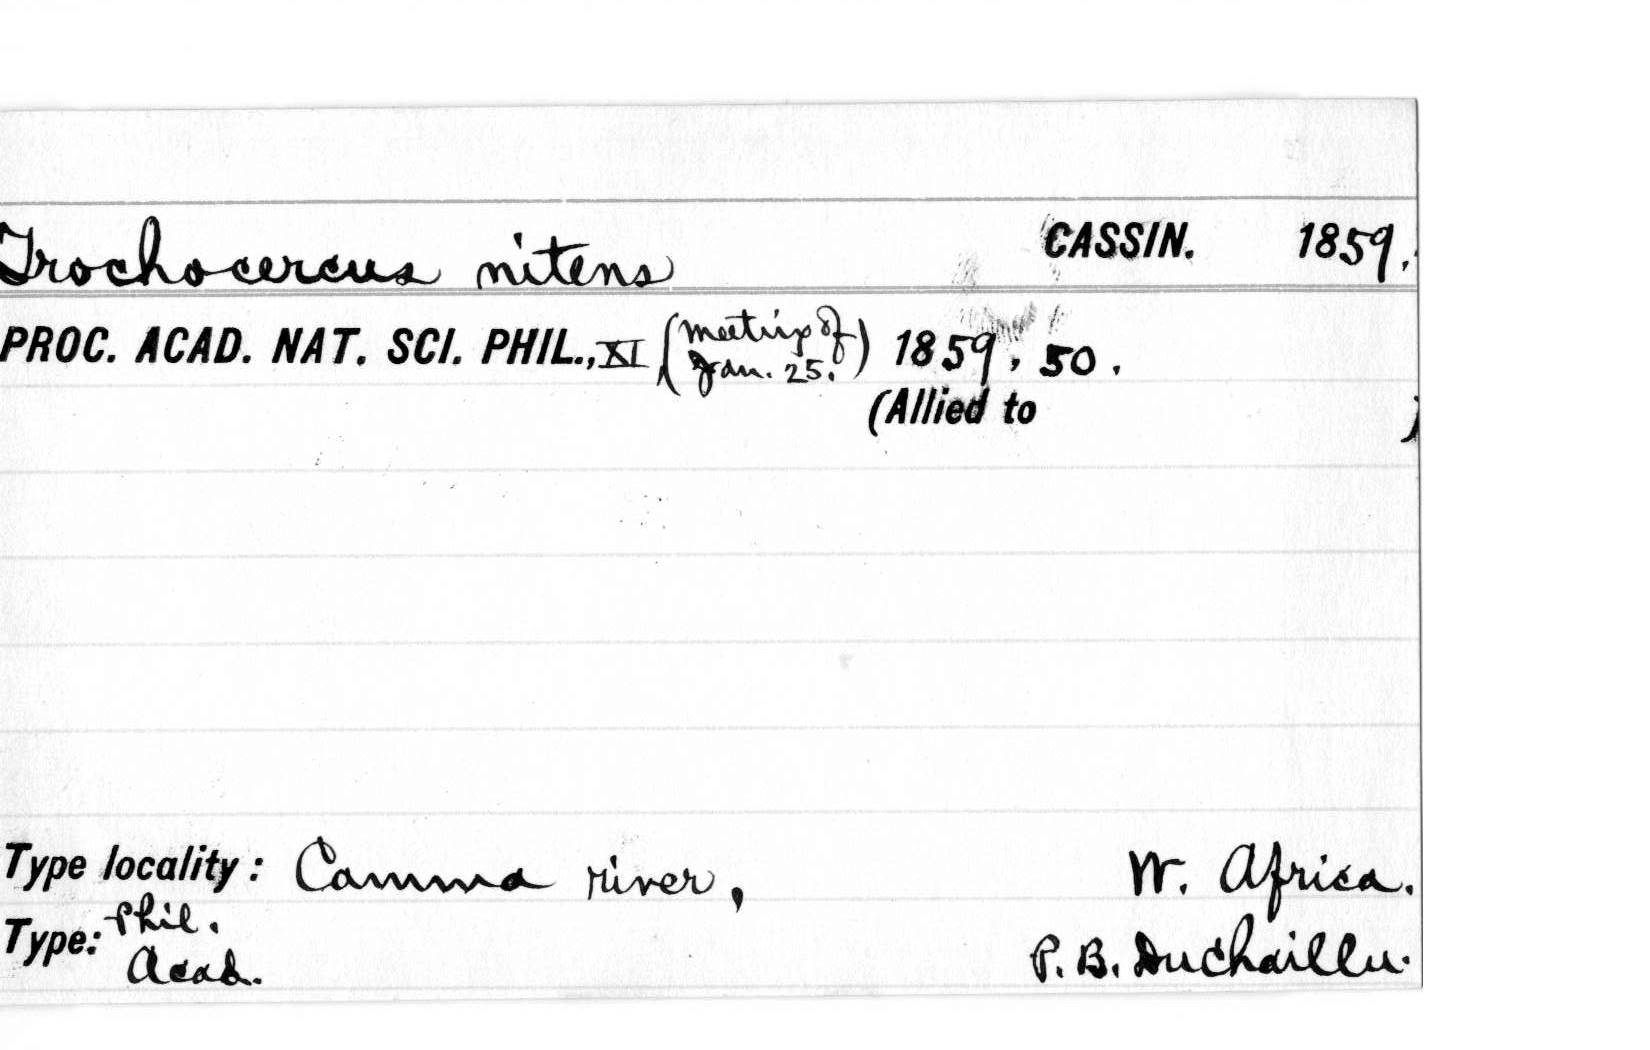 Trochocercus nitens CASSIN. 1859.
PROC. ACAD. NAT. SCI. PHIL., XI, (meeting of Jan. 25.) 1859, 50.
(Allied to )
Type locality: Camma river, W. Africa.
Type: Phil. Acad. P. B. Duchaillu.